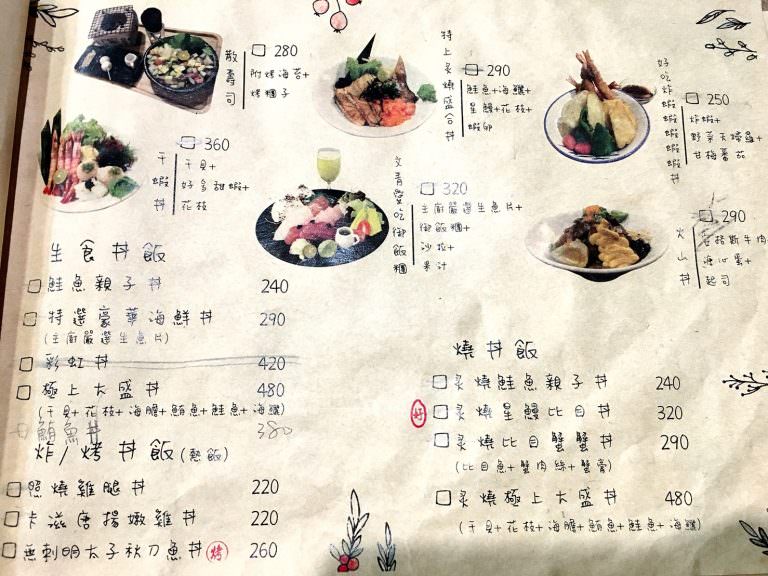 散壽司
280
附烤海苔+
烤糰子
特上炙燒盛合丼
290
鮭魚+海鱺+
星鰻+花枝+
蝦卵
好吃炸蝦蝦蝦蝦丼
250
炸蝦+
野菜天婦羅+
甘梅蕃茄
干蝦丼
360
干貝+
好多甜蝦+
花枝
文青愛吃御飯糰
320
主廚嚴選生魚片+
御飯糰+
沙拉+
果汁
火山丼
290
安格斯牛肉
溏心蛋+
起司
生食丼飯
鮭魚親子丼 240
特選豪華海鮮丼 290
(主廚嚴選生魚片)
彩虹丼 420
極上大盛丼 480
(干貝+花枝+海膽+鮪魚+鮭魚+海鱺)
鮪魚丼 380
炸/烤丼飯(熱飯)
照燒雞腿丼 220
卡滋唐揚嫩雞丼 220
無刺明太子秋刀魚丼 烤 260
燒丼飯
炙燒鮭魚親子丼 240
好 炙燒星鰻比目丼 320
炙燒比目蟹蟹丼 290
(比目魚+蟹肉絲+蟹膏)
炙燒極上大盛丼 480
(干貝+花枝+海膽+鮪魚+鮭魚+海鱺)